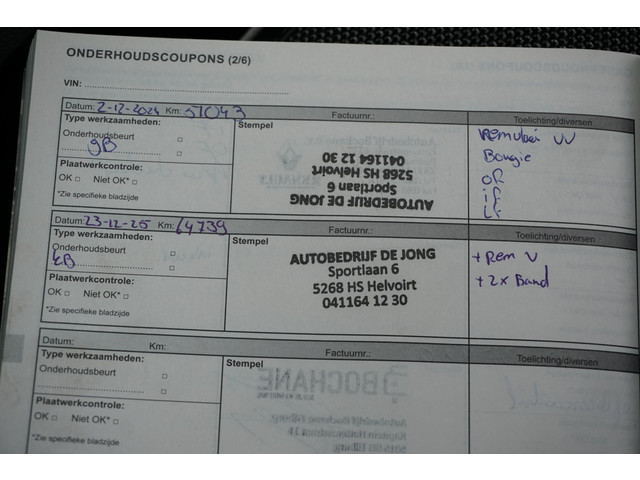 ONDERHOUDSCOUPONS (2/6)
VIN:
Datum: 2-12-2024 Km: 51043 Factuurnr.: Toelichting/diversen
Type werkzaamheden:
Onderhoudsbeurt
gB
Plaatwerkcontrole:
OK Niet OK*
*Zie specifieke bladzijde
Stempel
AUTOBEDRIJF DE JONG
Sportlaan 6
5268 HS Helvoirt
041164 12 30
VV
Bougie
OF
iF
LF
Datum: 23-12-25 Km: 64739 Factuurnr.: Toelichting/diversen
Type werkzaamheden:
Onderhoudsbeurt
kB
Plaatwerkcontrole:
OK Niet OK*
*Zie specifieke bladzijde
Stempel
AUTOBEDRIJF DE JONG
Sportlaan 6
5268 HS Helvoirt
041164 12 30
+ Rem V
+ 2x Band
Datum: Km: Factuurnr.: Toelichting/diversen
Type werkzaamheden:
Onderhoudsbeurt
Plaatwerkcontrole:
OK Niet OK*
*Zie specifieke bladzijde
Stempel
BOCHANE